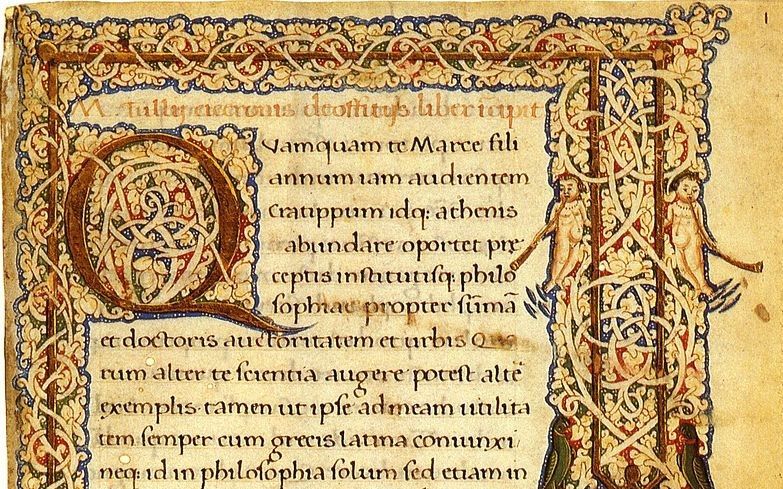 M tullij ciceronis de offitijs liber īcipit
1
Quamquam te Marce fili
annum iam audientem
Cratippum idq: athenis
abundare oportet pre
ceptis institutisq: philo
sophiae propter sūmā
et doctoris auctoritatem et urbis Quo
rum alter te scientia augere potest altē
exemplis. tamen ut ipse ad meam utilita
tem semper cum grecis latina coniunxi
neq: id in philosophia solum sed etiam in